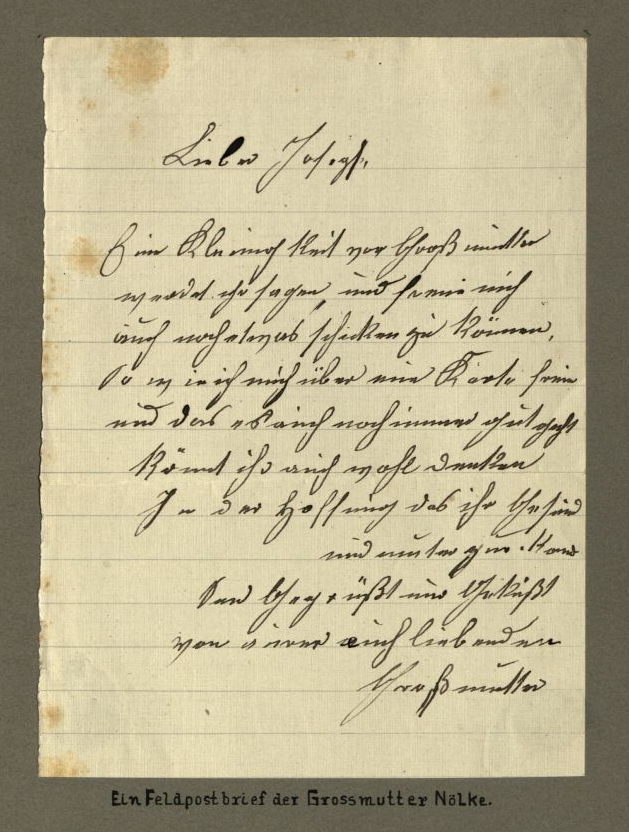 Lieber Joseph,
Eine Kleinigkeit von Großmutter
werdet ihr sagen, und freue mich
auch noch etwas schicken zu können,
So wie ich mich über eine Karte freue
und das es auch noch immer gut geht
könnt ihr auch wohl denken
In der Hoffnung das ihr Gesund
und munter
Seid Gegrüßt und Geküßt
von eurer euch liebenden
Großmutter
Ein Feldpostbrief der Grossmutter Nölke.